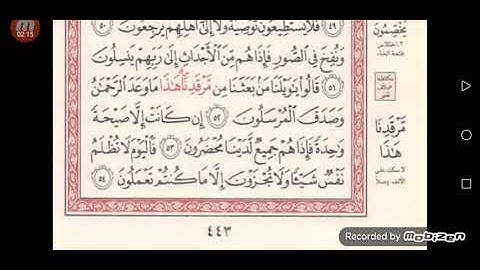 02:15
يَخِصِّمُونَ
فَلَا يَسْتَطِيعُونَ تَوْصِيَةً وَلَا إِلَىٰ أَهْلِهِمْ يَرْجِعُونَ ٥٠
وَنُفِخَ فِي الصُّورِ فَإِذَا هُم مِّنَ الْأَجْدَاثِ إِلَىٰ رَبِّهِمْ يَنسِلُونَ
٥١ قَالُوا يَا وَيْلَنَا مَن بَعَثَنَا مِن مَّرْقَدِنَا هَٰذَا مَا وَعَدَ الرَّحْمَٰنُ
وَصَدَقَ الْمُرْسَلُونَ ٥٢ إِن كَانَتْ إِلَّا صَيْحَةً
وَاحِدَةً فَإِذَا هُمْ جَمِيعٌ لَّدَيْنَا مُحْضَرُونَ ٥٣ فَالْيَوْمَ لَا تُظْلَمُ
نَفْسٌ شَيْئًا وَلَا تُجْزَوْنَ إِلَّا مَا كُنتُمْ تَعْمَلُونَ ٥٤
مَّرْقَدِنَا
هَٰذَا
٤٤٣
Recorded by Mobizen